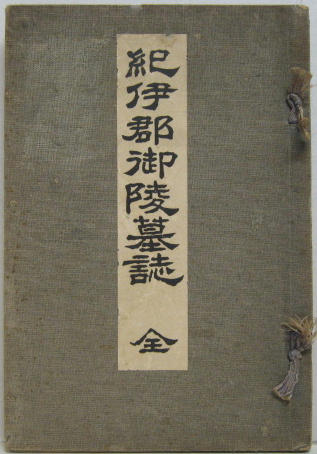 紀伊郡御陵墓誌 全